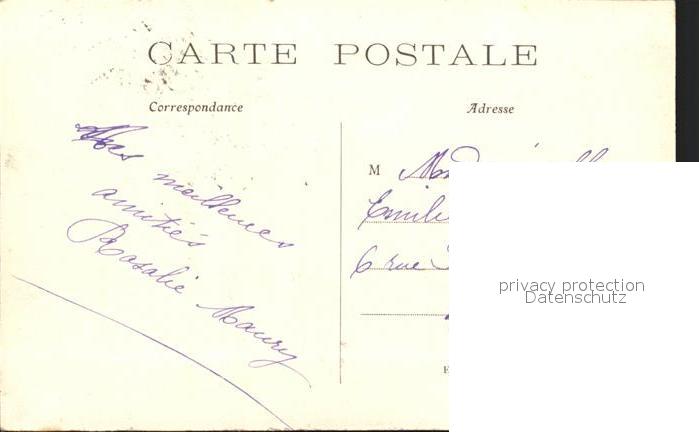 CARTE POSTALE
Correspondance
Adresse
Mes meilleures
amitiés
Rosalie Maury
M
6 rue
privacy protection
Datenschutz